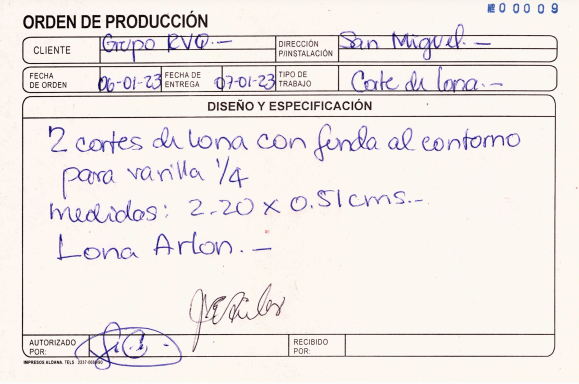 Nº 00009
ORDEN DE PRODUCCIÓN
CLIENTE Grupo RVQ.— DIRECCIÓN P/INSTALACIÓN San Miguel.—
FECHA DE ORDEN 06-01-23 FECHA DE ENTREGA 07-01-23 TIPO DE TRABAJO Corte de lona.—
DISEÑO Y ESPECIFICACIÓN
2 cortes de lona con funda al contorno
para varilla 1/4
medidas: 2.20 x 0.51 cms.-
Lona Arlon.—
AUTORIZADO POR: RECIBIDO POR:
IMPRESOS ALDANA. TELS.